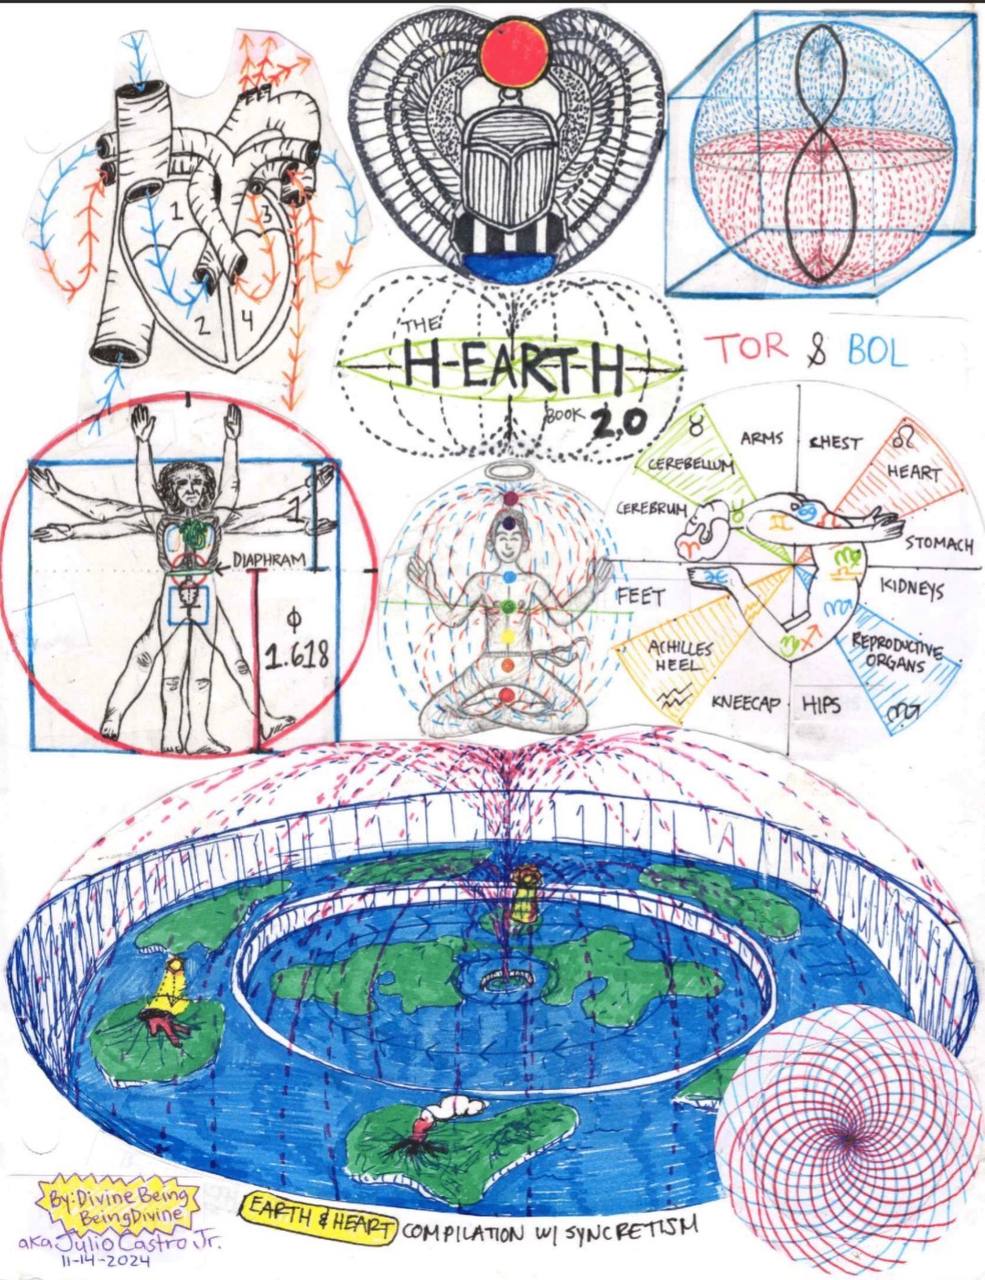 1
3
2
4
"THE"
H-EARTH
BOOK 2.0
TOR & BOL
ARMS
CHEST
CEREBELLUM
HEART
CEREBRUM
STOMACH
FEET
KIDNEYS
ACHILLES
HEEL
REPRODUCTIVE
ORGANS
KNEECAP
HIPS
1
DIAPHRAM
ϕ
1.618
By: Divine Being
Being Divine
aka Julio Castro Jr.
11-14-2024
EARTH & HEART COMPILATION W/ SYNCRETISM